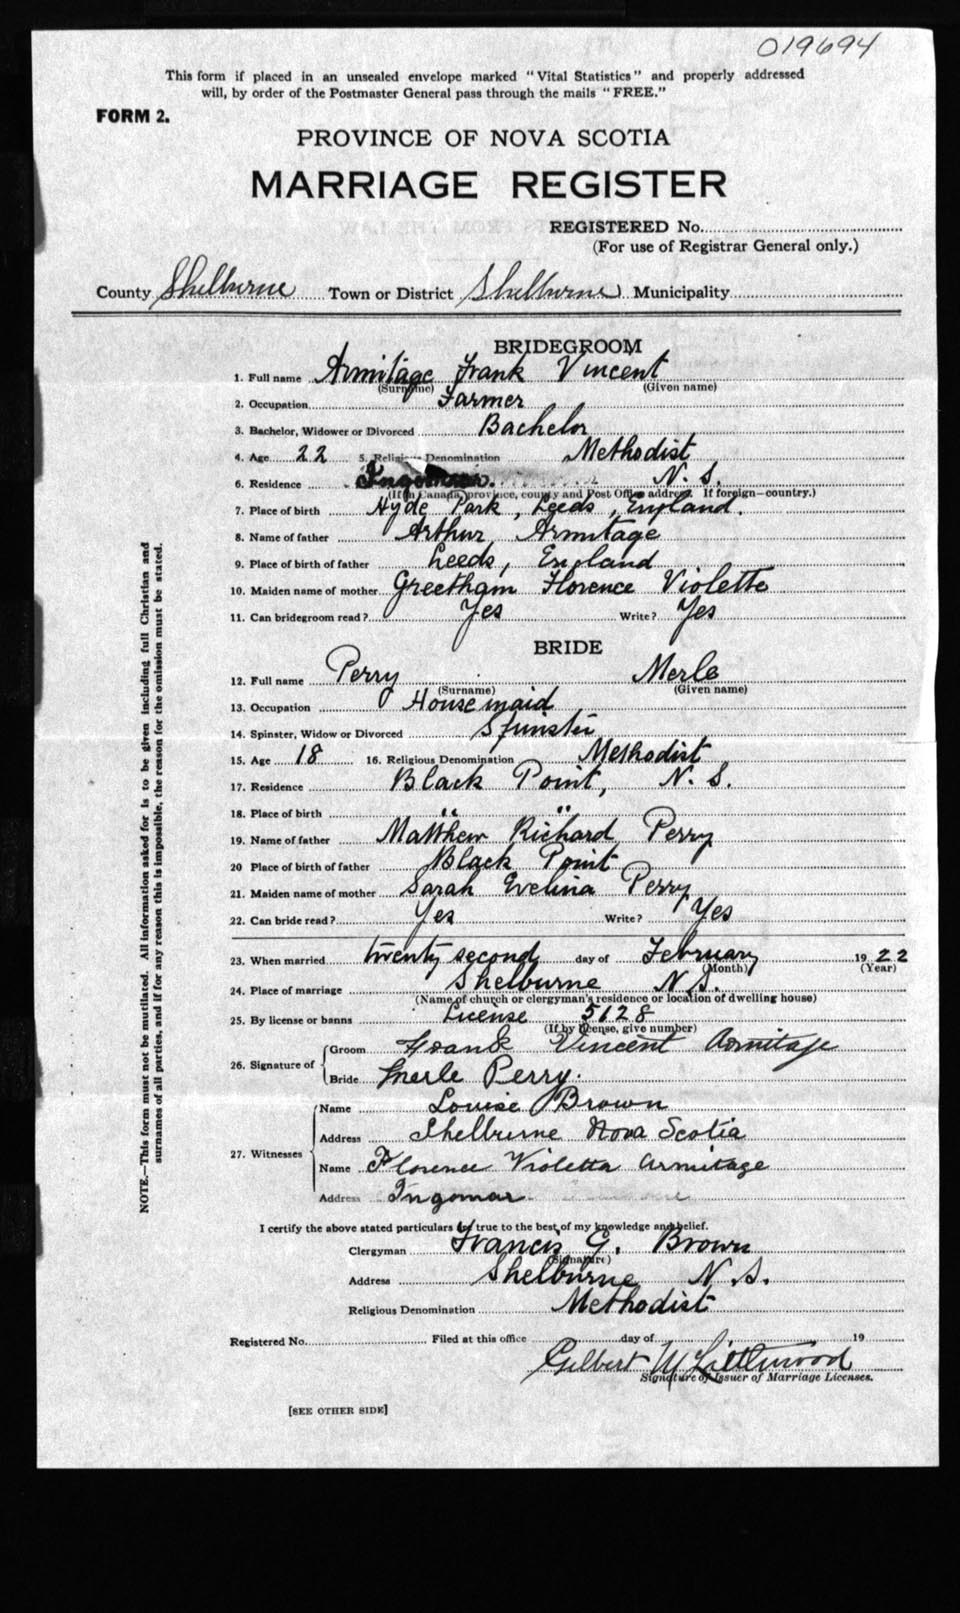 019694
This form if placed in an unsealed envelope marked "Vital Statistics" and properly addressed
will, by order of the Postmaster General pass through the mails "FREE."
FORM 2.
PROVINCE OF NOVA SCOTIA
MARRIAGE REGISTER
REGISTERED No.
(For use of Registrar General only.)
County Shelburne Town or District Shelburne Municipality
BRIDEGROOM
1. Full name Armitage Frank Vincent
(Surname) (Given name)
2. Occupation Farmer
3. Bachelor, Widower or Divorced Bachelor
4. Age 22 5. Religious Denomination Methodist
6. Residence Ingomar. N. S.
(If in Canada, province, county and Post Office address. If foreign—country.)
7. Place of birth Hyde Park, Leeds, England.
8. Name of father Arthur Armitage
9. Place of birth of father Leeds, England
10. Maiden name of mother Greetham Florence Violette
11. Can bridegroom read? Yes Write? Yes
BRIDE
12. Full name Perry Merle
(Surname) (Given name)
13. Occupation House maid
14. Spinster, Widow or Divorced Spinster
15. Age 18 16. Religious Denomination Methodist
17. Residence Black Point, N. S.
18. Place of birth " "
19. Name of father Matthew Richard Perry
20 Place of birth of father Black Point
21. Maiden name of mother Sarah Evelina Perry
22. Can bride read? Yes Write? Yes
23. When married twenty second day of February 1922
(Month) (Year)
24. Place of marriage Shelburne N.S.
(Name of church or clergyman's residence or location of dwelling house)
25. By license or banns License 5128
(If by license, give number)
26. Signature of Groom Frank Vincent Armitage
Bride Merle Perry.
27. Witnesses Name Louise Brown
Address Shelburne Nova Scotia
Name Florence Violetta Armitage
Address Ingomar
I certify the above stated particulars are true to the best of my knowledge and belief.
Clergyman Francis G. Brown
(Signature)
Address Shelburne N.S.
Religious Denomination Methodist
Registered No. Filed at this office day of 19
Gilbert Mc Littlewood
Signature of Issuer of Marriage Licenses.
[SEE OTHER SIDE]
NOTE.—This form must not be mutilated. All information asked for is to be given including full Christian and
surnames of all parties, and if for any reason this is impossible, the reason for the omission must be stated.